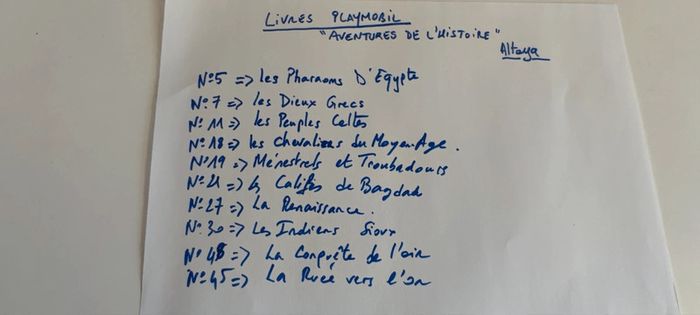 LIVRES PLAYMOBIL
"AVENTURES DE L'HISTOIRE"
Altaya
N°5 => les Pharaons D'Egypte
N°7 => les Dieux Grecs
N°11 => les Peuples Celtes
N°18 => les Chevaliers du Moyen-Age.
N°19 => Ménestrels et Troubadours
N°21 => les Califes de Bagdad
N°27 => La Renaissance.
N°30 => Les Indiens Sioux
N°48 => La Conquête de l'air
N°45 => La Ruée vers l'or